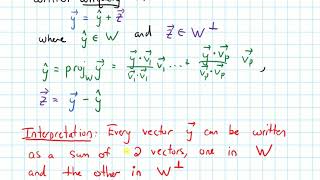 written uniquely
y⃗ = ŷ + z⃗
where ŷ ∈ W and z⃗ ∈ W⊥
ŷ = proj_W y⃗ = (y⃗·v⃗₁ / v⃗₁·v⃗₁) v⃗₁ ... + (y⃗·v⃗p / v⃗p·v⃗p) v⃗p ,
z⃗ = y⃗ - ŷ
Interpretation: Every vector y⃗ can be written
as a sum of 2 vectors, one in W
and the other in W⊥